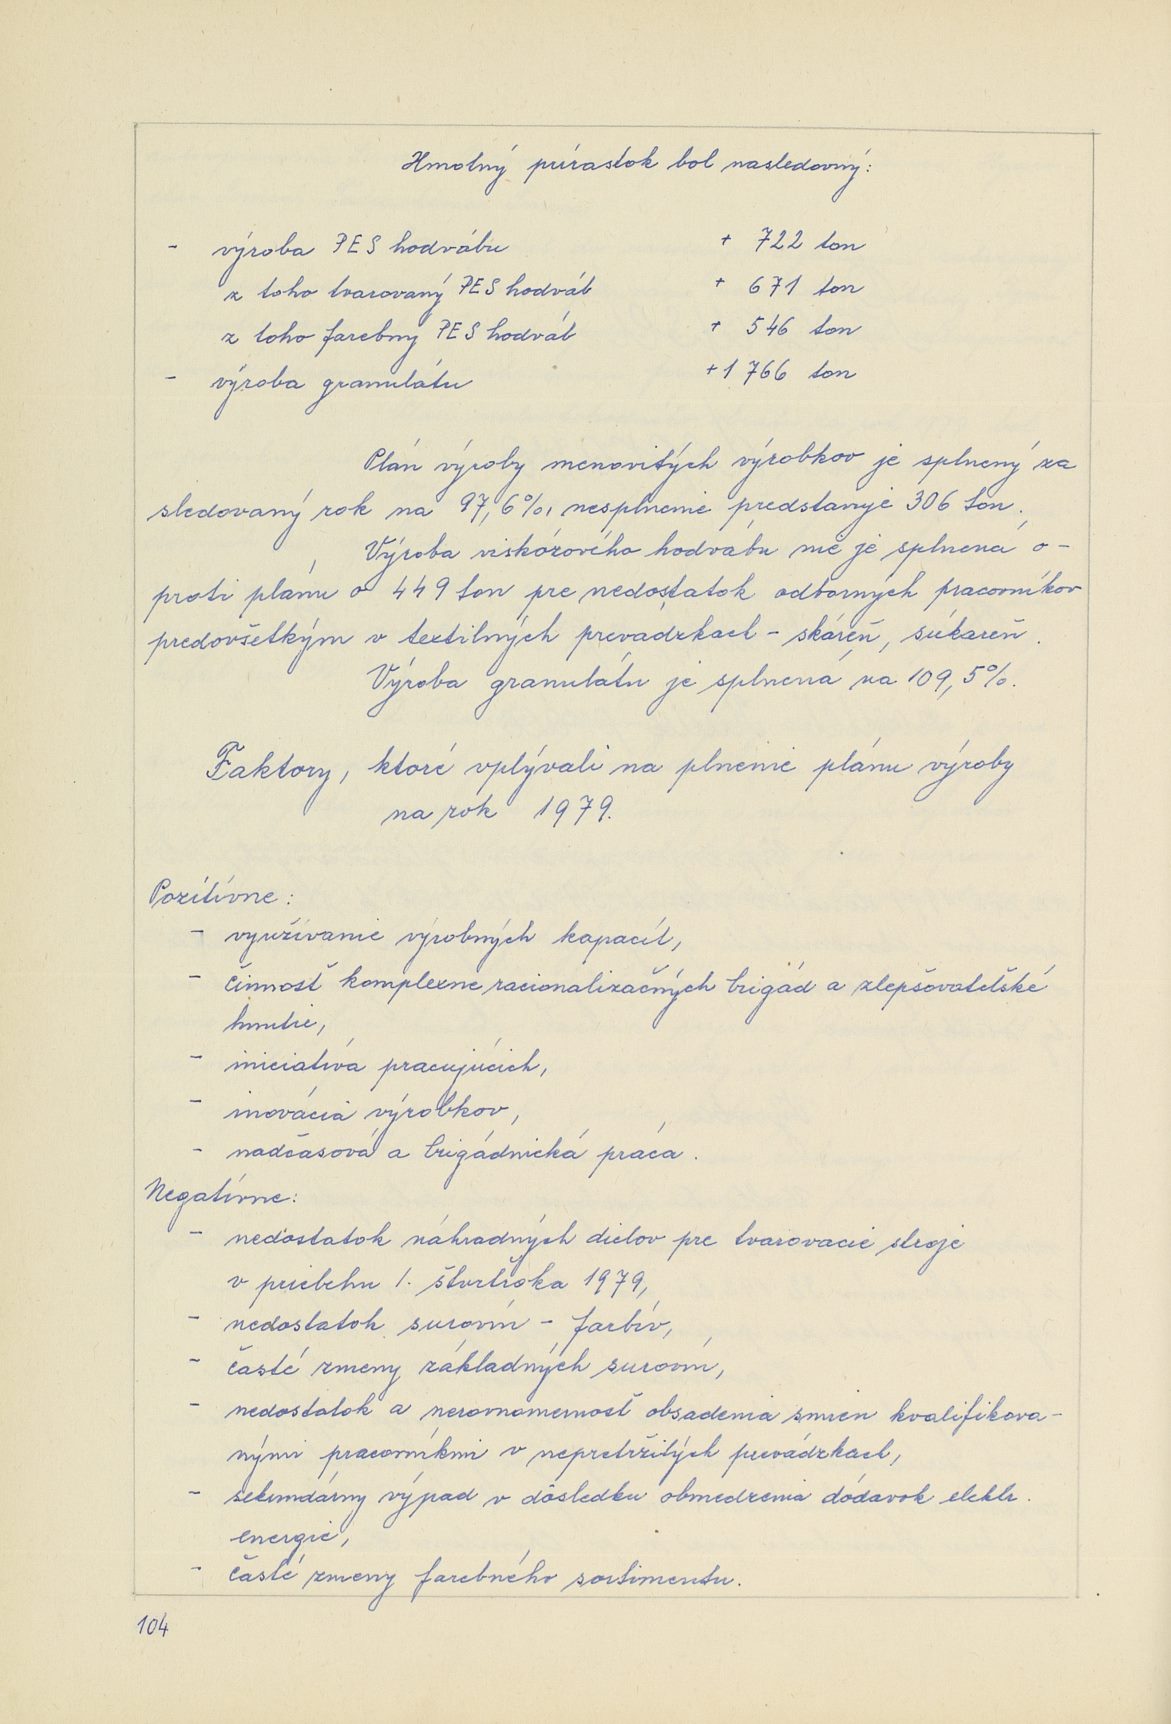 Hmotný prírastok bol nasledovný:
- výroba PES hodvábu + 722 ton
z toho tvarovaný PES hodváb + 671 ton
z toho farebny PES hodváb + 546 ton
- výroba granulátu +1 766 ton
Plán výroby menovitých výrobkov je splnený za
sledovaný rok na 97,6%, nesplnenie predstavuje 306 ton.
Výroba viskózového hodvábu nie je splnená o-
proti plánu o 449 ton pre nedostatok odborných pracovníkov
predovšetkým v textilných prevádzkach - skáreň, súkareň.
Výroba granulátu je splnená na 109,5%.
Faktory, ktoré vplývali na plnenie plánu výroby
na rok 1979.
Pozitívne:
- využívanie výrobných kapacít,
- činnosť komplexne racionalizačných brigád a zlepšovateľské
hnutie,
- iniciatíva pracujúcich,
- inovácia výrobkov,
- nadčasová a brigádnická práca.
Negatívne:
- nedostatok náhradných dielov pre tvarovacie stroje
v priebehu 1. štvrťroka 1979,
- nedostatok surovín - farbív,
- časté zmeny základných surovín,
- nedostatok a nerovnomernosť obsadenia smien kvalifikova-
nými pracovníkmi v nepretržitých prevádzkach,
- sekundárny výpad v dôsledku obmedzenia dodávok elektr.
energie,
- časté zmeny farebného sortimentu.
104